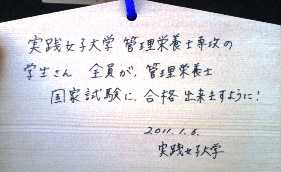 実践女子大学 管理栄養士専攻の
学生さん 全員が、管理栄養士
国家試験に、合格 出来ますように!
2011.1.6.
実践女子大学